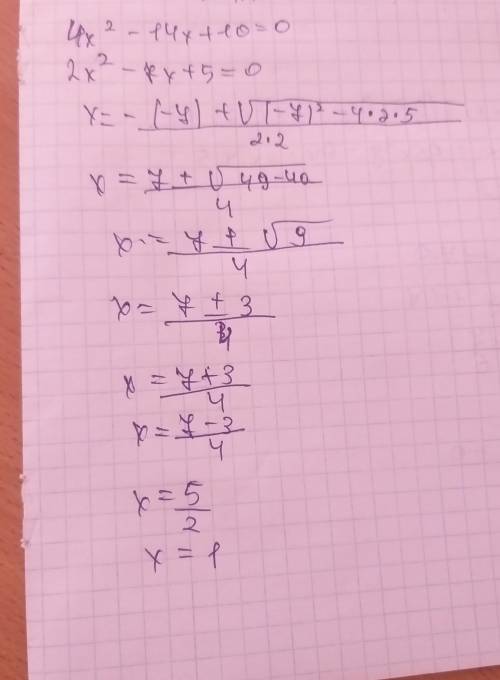 4x² - 14x + 10 = 0
2x² - 7x + 5 = 0
x = - (-7) + √(-7)² - 4·2·5 / 2·2
x = 7 + √49-40 / 4
x = 7 ± √9 / 4
x = 7 ± 3 / 4
x = 7+3 / 4
x = 7-3 / 4
x = 5 / 2
x = 1